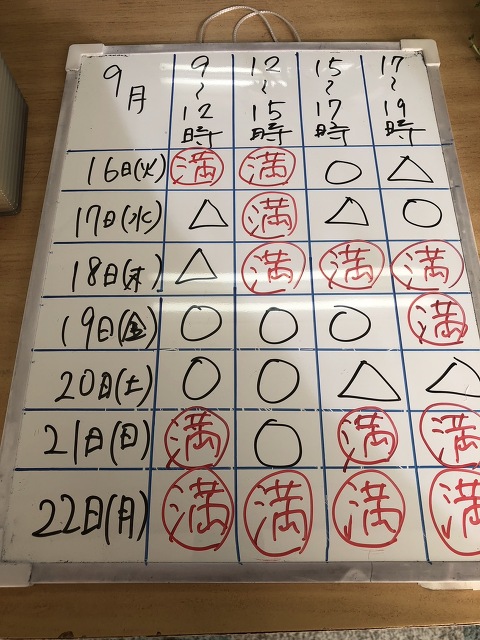 9月 9〜12時 12〜15時 15〜17時 17〜19時
16日(火) 満 満 ○ △
17日(水) △ 満 △ ○
18日(木) △ 満 満 満
19日(金) ○ ○ ○ 満
20日(土) ○ ○ △ △
21日(日) 満 ○ 満 満
22日(月) 満 満 満 満